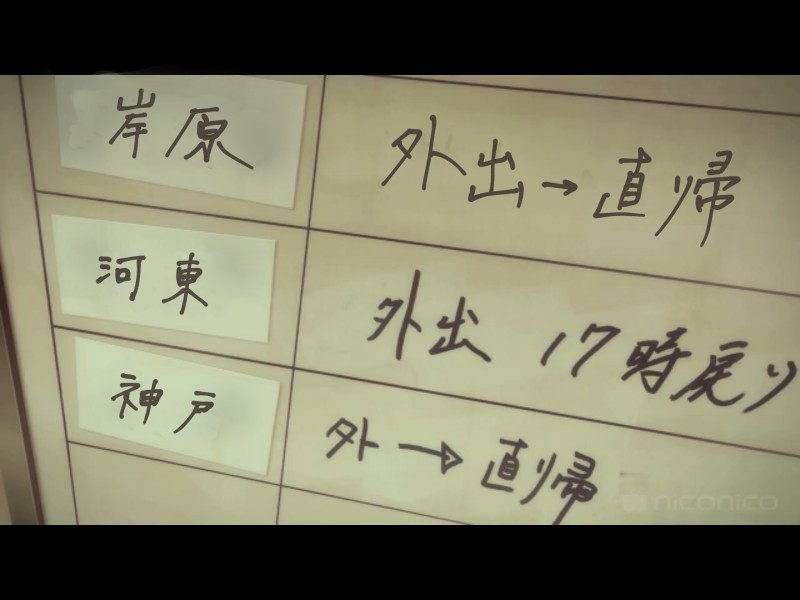 岸原 外出→直帰
河東 外出 17時戻り
神戸 外→直帰
niconico